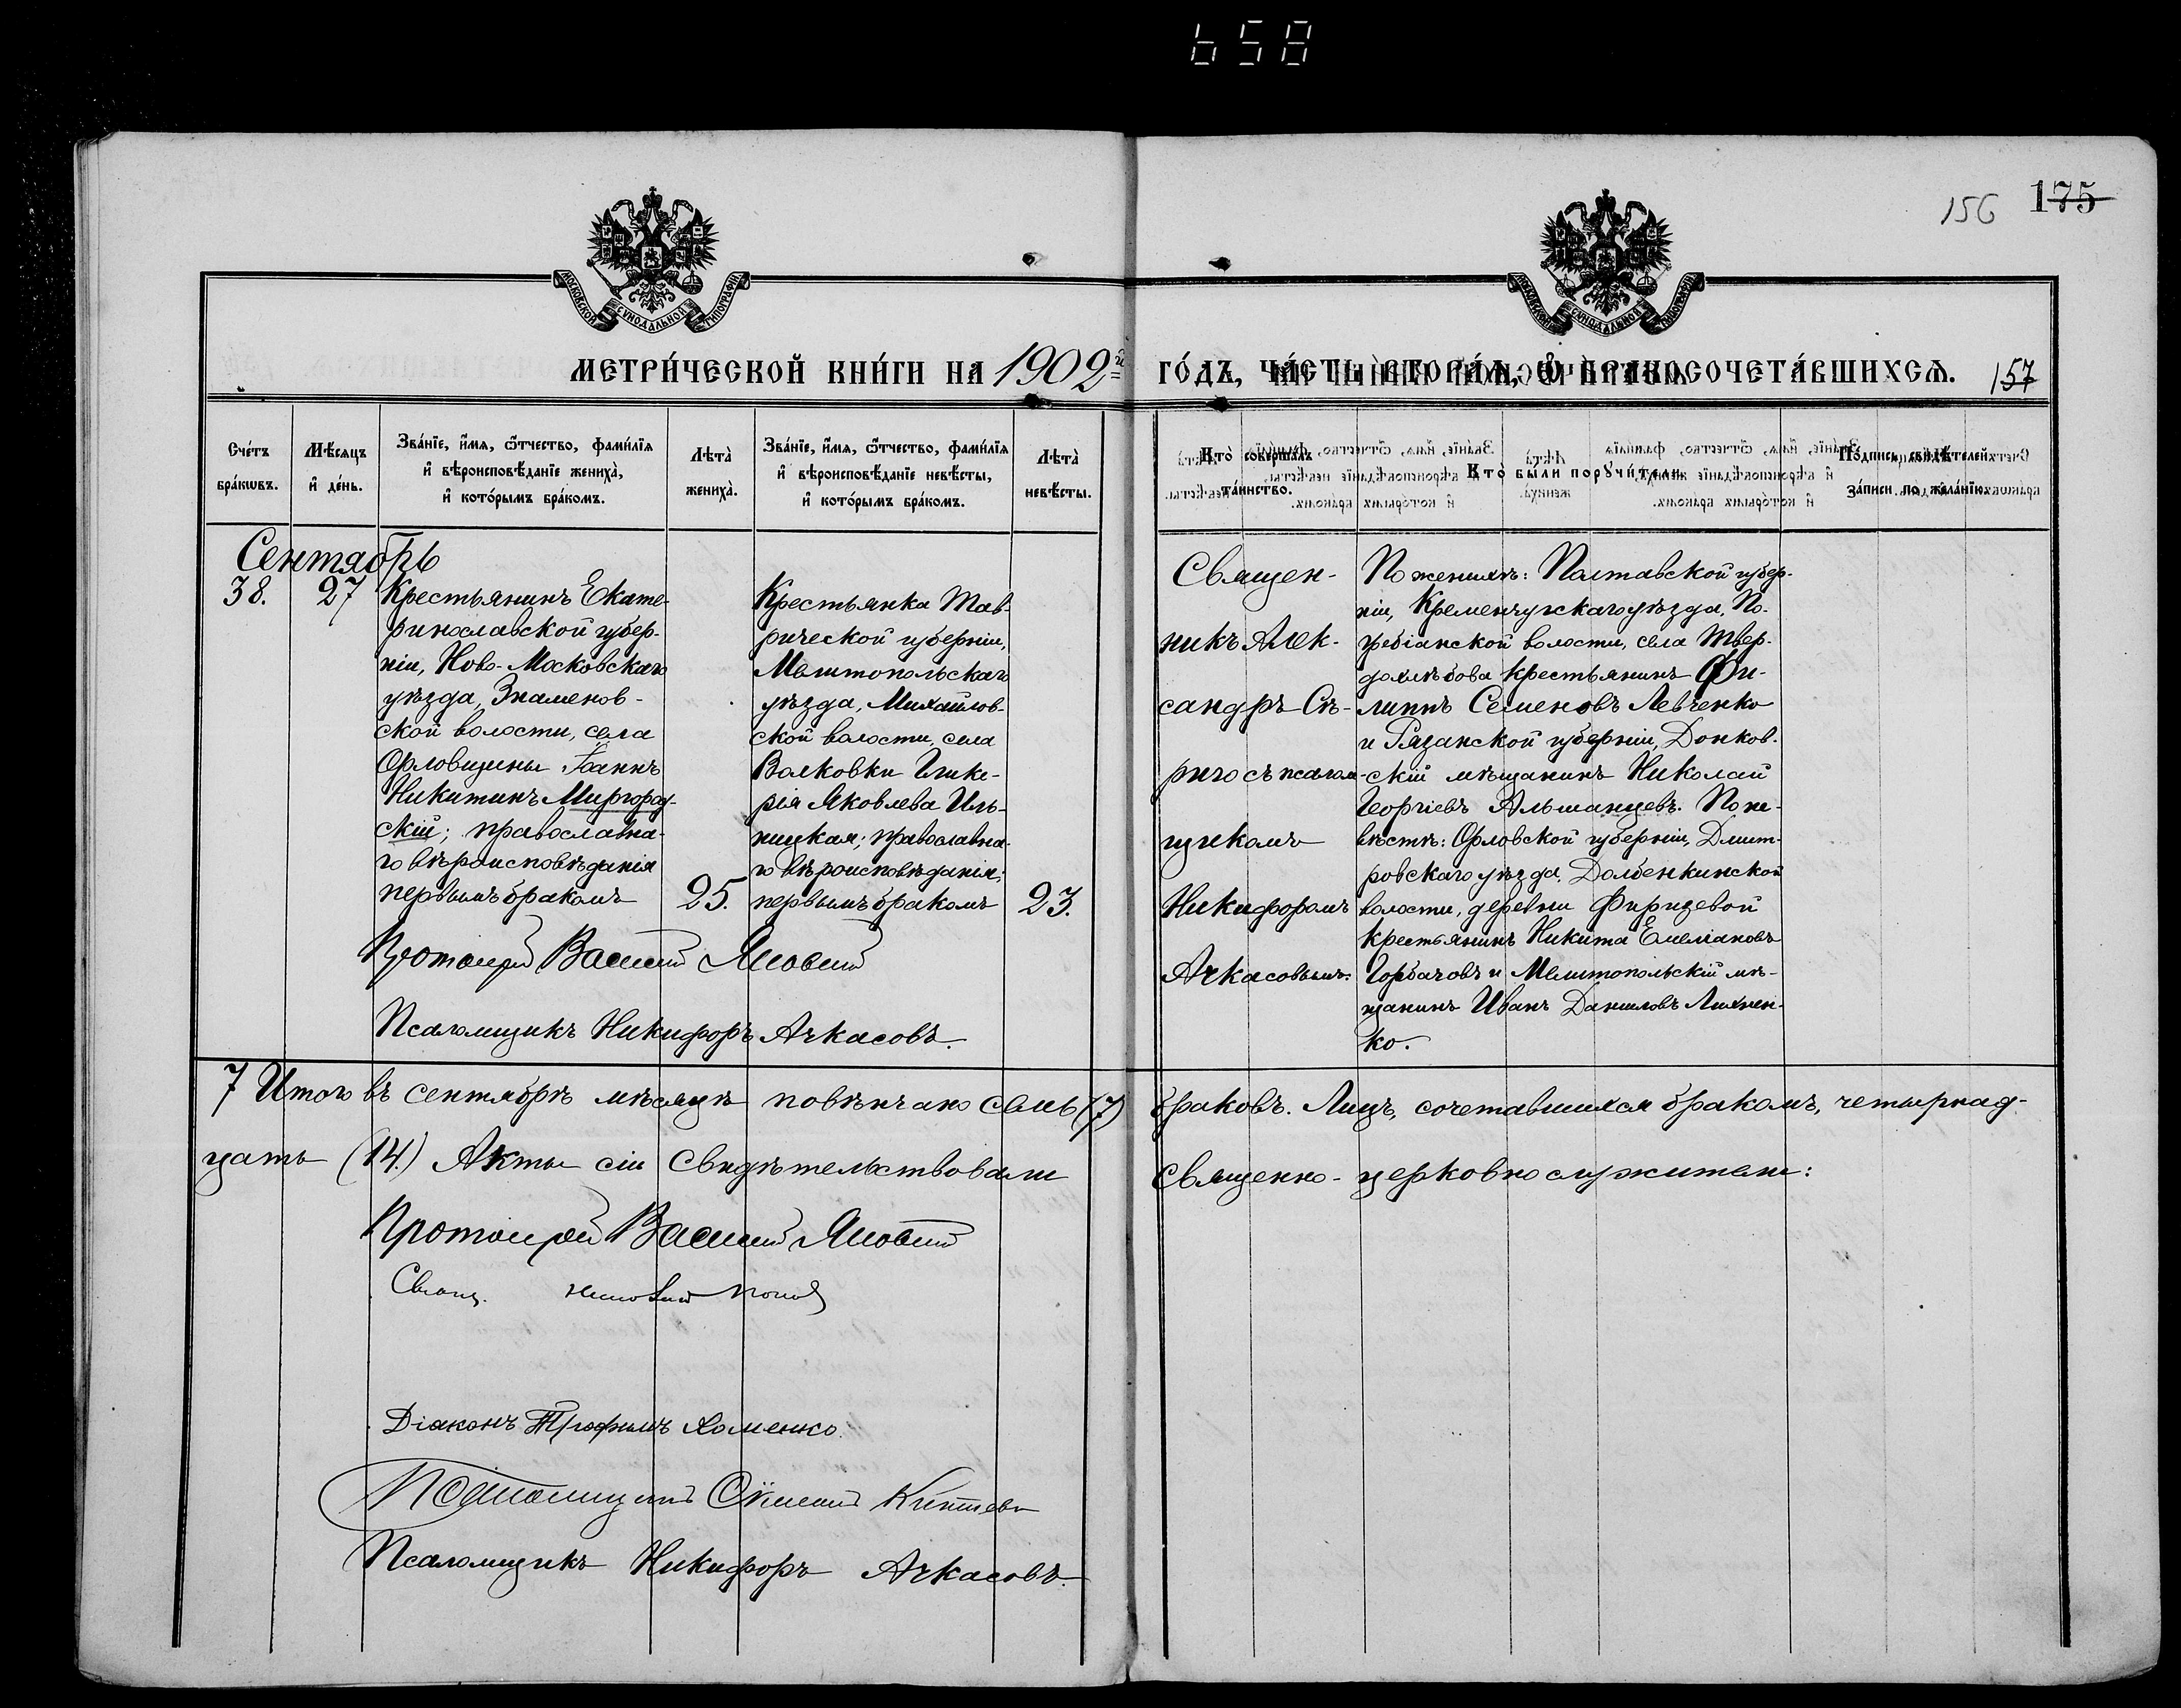 658
156 175
МОСКОВСКОЙ СѴНОДАЛЬНОЙ ТИПОГРАФІИ
МОСКОВСКОЙ СѴНОДАЛЬНОЙ ТИПОГРАФІИ
МЕТРИ́ЧЕСКОЙ КНИ́ГИ НА 1902й ГО́ДЪ, ЧА́СТЬ ВТОРА́Ѧ, Ѡ҆ БРАКОСОЧЕТА́ВШИХСѦ. 157
Сче́тъ бра́кѡвъ.
Мѣ́сяцъ и҆ де́нь.
Зва́нїе, и҆́мя, ѻ҆́тчество, фами́лїя
и҆ вѣроисповѣ́данїе жениха̀,
и҆ кото́рымъ бра́комъ.
Лѣта̀ жениха̀.
Зва́нїе, и҆́мя, ѻ҆́тчество, фами́лїя
и҆ вѣроисповѣ́данїе невѣ́сты,
и҆ кото́рымъ бра́комъ.
Лѣта̀ невѣ́сты.
Кто̀ соверша́лъ та́инство.
Кто̀ бы́ли порꙋчи́тели.
По́дпись свидѣ́телей
за́писи по жела́нїю.
Сентябрь
38. 27
Крестьянинъ Екате-
ринославской губер-
ніи, Ново-Московскаго
уѣзда, Знаменов-
ской волости, села
Орловщины Іоаннъ
Никитинъ Миргород-
скій; православна-
го вѣроисповѣданія
первымъ бракомъ
25.
Крестьянка Тав-
рической губерніи,
Мелитопольскаго
уѣзда, Михайлов-
ской волости, села
Волковки Глике-
рія Яковлева Иль-
ницкая; православна-
го вѣроисповѣданія;
первымъ бракомъ
23.
Протоіерей Василій
Псаломщикъ Никифоръ Ачкасовъ.
Священ-
никъ Алек-
сандръ Сѣ-
риго съ псалом-
щикомъ
Никифоромъ
Ачкасовымъ.
По женихѣ: Полтавской губер-
ніи, Кременчугскаго уѣзда, По-
гребіанской волости, села Твер-
дохлѣбова крестьянинъ Фи-
липпъ Семеновъ Левченко
и Рязанской губерніи, Донков-
скій мѣщанинъ Николай
Георгіевъ Альшанцевъ. По не-
вѣстѣ: Орловской губерніи, Дмит-
ровскаго уѣзда, Долбенкинской
волости, деревни Фирцевой
крестьянинъ Никита Емеліановъ
Горбачовъ и Мелитопольскій мѣ-
щанинъ Иванъ Даниловъ Лихнен-
ко.
7 Итого въ сентябрѣ мѣсяцѣ повѣнчано семь (7) браковъ. Лицъ, сочетавшихся бракомъ, четырнад-
цать (14.) Акты сіи свидѣтельствовали священно-церковнослужители:
Протоіерей Василій
Свящ. Попов
Діаконъ Трофимъ Хоменко.
Псаломщикъ
Псаломщикъ Никифоръ Ачкасовъ.